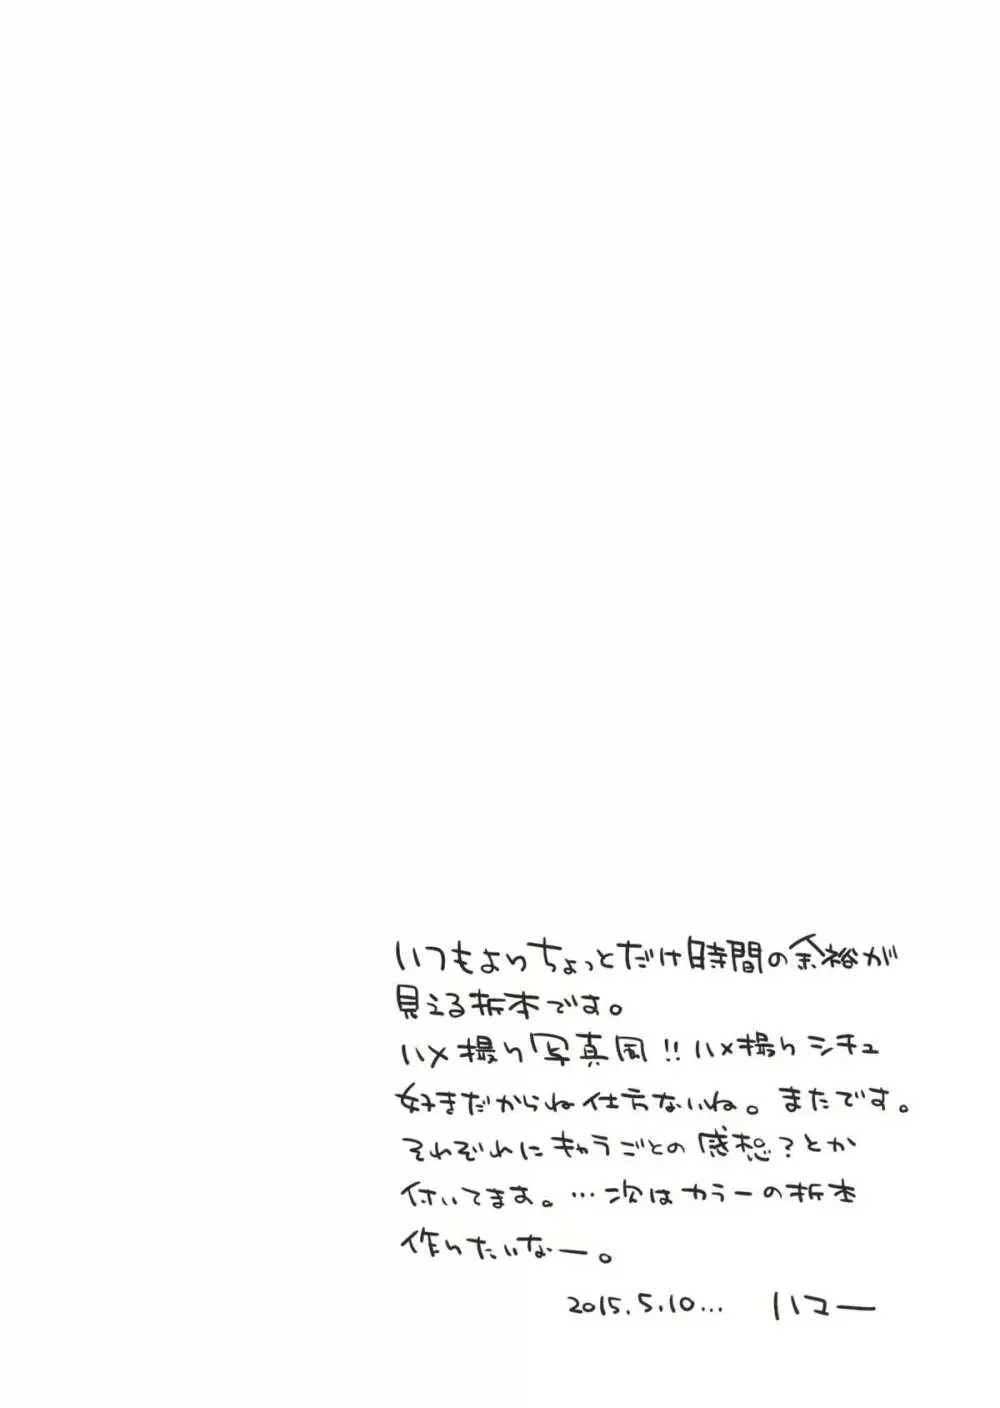 いつもよりちょっとだけ時間の余裕が
見える折本です。
ハメ撮り写真風!!ハメ撮りシチュ
好きだからね仕方ないね。またです。
それぞれにキャラごとの感想?とか
付いてます。…次はカラーの折本
作りたいなー。
2015.5.10... ハマー